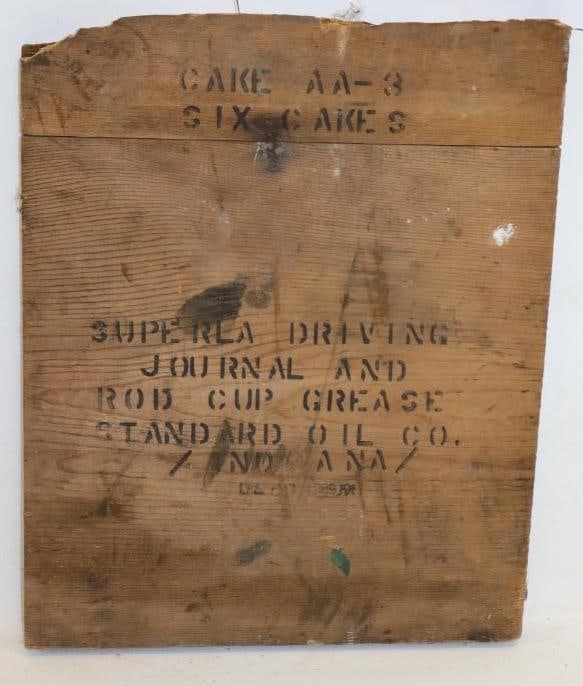 CAKE AA-3
SIX CAKES
SUPERLA DRIVING
JOURNAL AND
ROD CUP GREASE
STANDARD OIL CO.
/INDIANA/